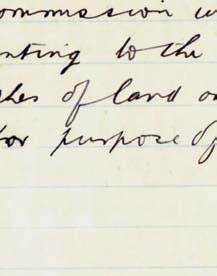 ommission
nting to the
ches of land on
for purpose of